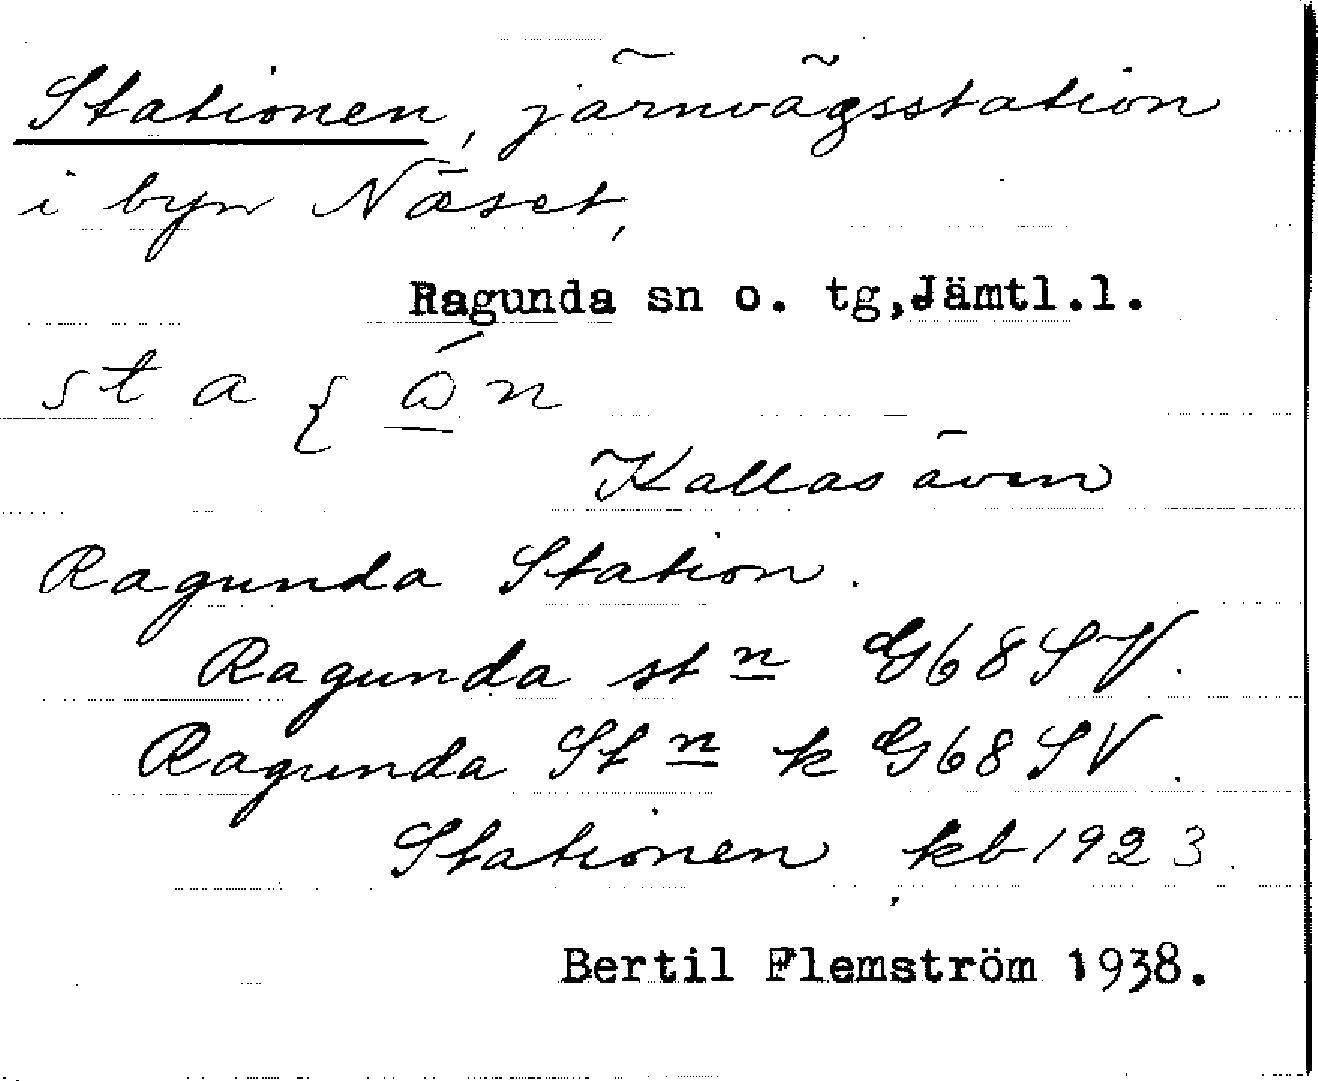 Stationen, järnvägsstation
i byn Näset,
Ragunda sn o. tg,Jämtl.l.
Kallas även
Ragunda Station.
Ragunda st n G68SV.
Ragunda St n k G68SV.
Stationen kb 1923.
Bertil Flemström 1938.